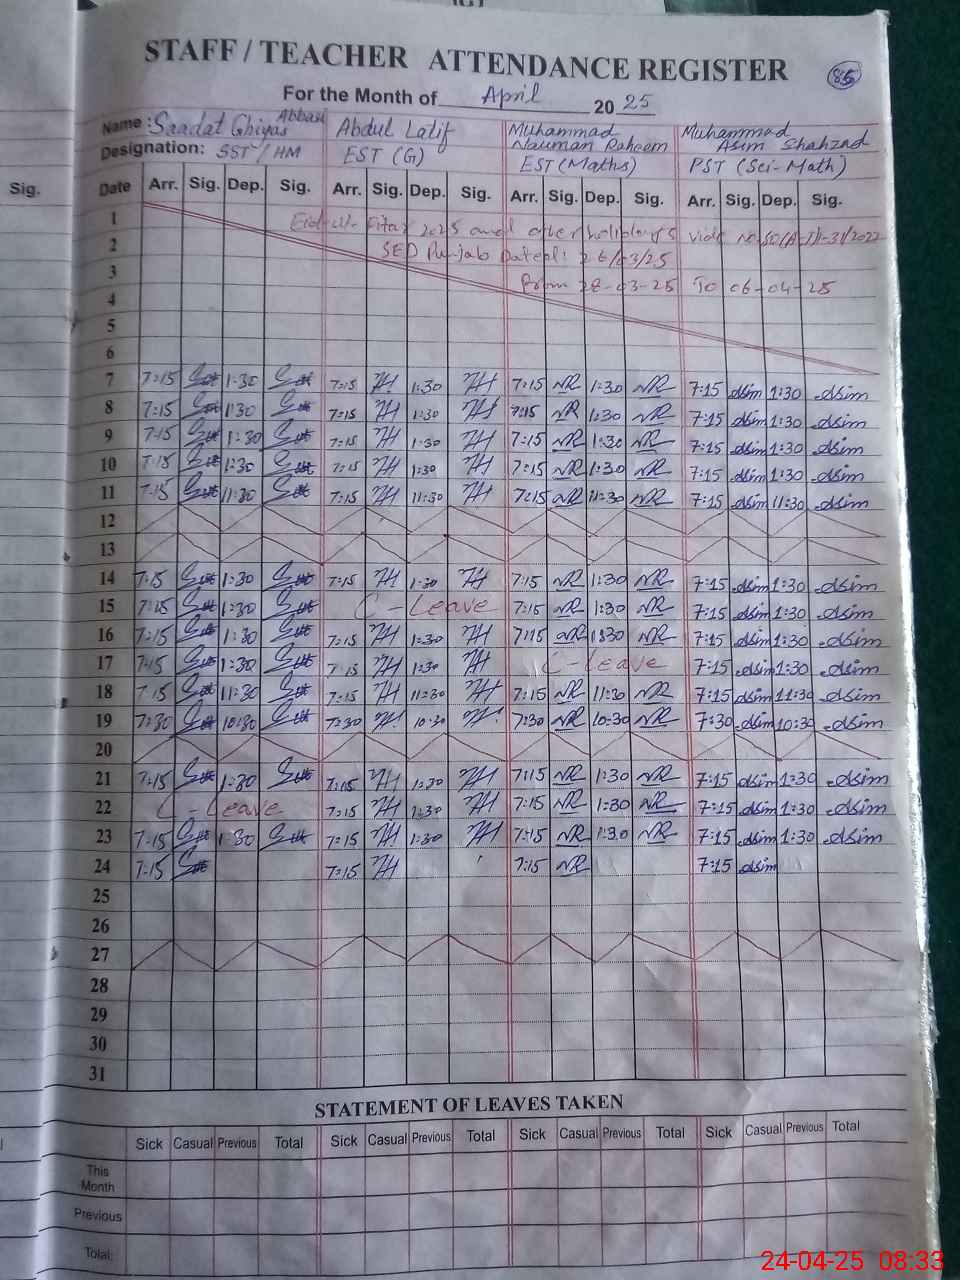 STAFF / TEACHER ATTENDANCE REGISTER
85
For the Month of April 20 25
Name : Saadat Ghiyas Abbasi Abdul Latif Muhammad Nauman Raheem Muhammad Asim Shahzad
Designation: SST / HM EST (G) EST (Maths) PST (Sci-Math)
Sig.
Date Arr. Sig. Dep. Sig. Arr. Sig. Dep. Sig. Arr. Sig. Dep. Sig. Arr. Sig. Dep. Sig.
1 Eid-ul-Fitar 2025 and other holidays vide No.
2 SED Punjab Dated: 26/03/25
3 From 28-03-25 To 06-04-25
4
5
6
7 7:15 1:30 7:15 1:30 7:15 NR 1:30 NR 7:15 Asim 1:30 Asim
8 7:15 1:30 7:15 1:30 7:15 NR 1:30 NR 7:15 Asim 1:30 Asim
9 7:15 1:30 7:15 1:30 7:15 NR 1:30 NR 7:15 Asim 1:30 Asim
10 7:15 1:30 7:15 1:30 7:15 NR 1:30 NR 7:15 Asim 1:30 Asim
11 7:15 11:30 7:15 11:30 7:15 NR 11:30 NR 7:15 Asim 11:30 Asim
12
13
14 7:15 1:30 7:15 1:30 7:15 NR 1:30 NR 7:15 Asim 1:30 Asim
15 7:15 1:30 C-Leave 7:15 NR 1:30 NR 7:15 Asim 1:30 Asim
16 7:15 1:30 7:15 1:30 7:15 NR 1:30 NR 7:15 Asim 1:30 Asim
17 7:15 1:30 7:15 1:30 C-Leave 7:15 Asim 1:30 Asim
18 7:15 11:30 7:15 11:30 7:15 NR 11:30 NR 7:15 Asim 11:30 Asim
19 7:30 10:30 7:30 10:30 7:30 NR 10:30 NR 7:30 Asim 10:30 Asim
20
21 7:15 1:30 7:15 1:30 7:15 NR 1:30 NR 7:15 Asim 1:30 Asim
22 C-Leave 7:15 1:30 7:15 NR 1:30 NR 7:15 Asim 1:30 Asim
23 7:15 1:30 7:15 1:30 7:15 NR 1:30 NR 7:15 Asim 1:30 Asim
24 7:15 7:15 7:15 NR 7:15 Asim
25
26
27
28
29
30
31
STATEMENT OF LEAVES TAKEN
Sick Casual Previous Total Sick Casual Previous Total Sick Casual Previous Total Sick Casual Previous Total
This Month
Previous
Total:
24-04-25 08:33